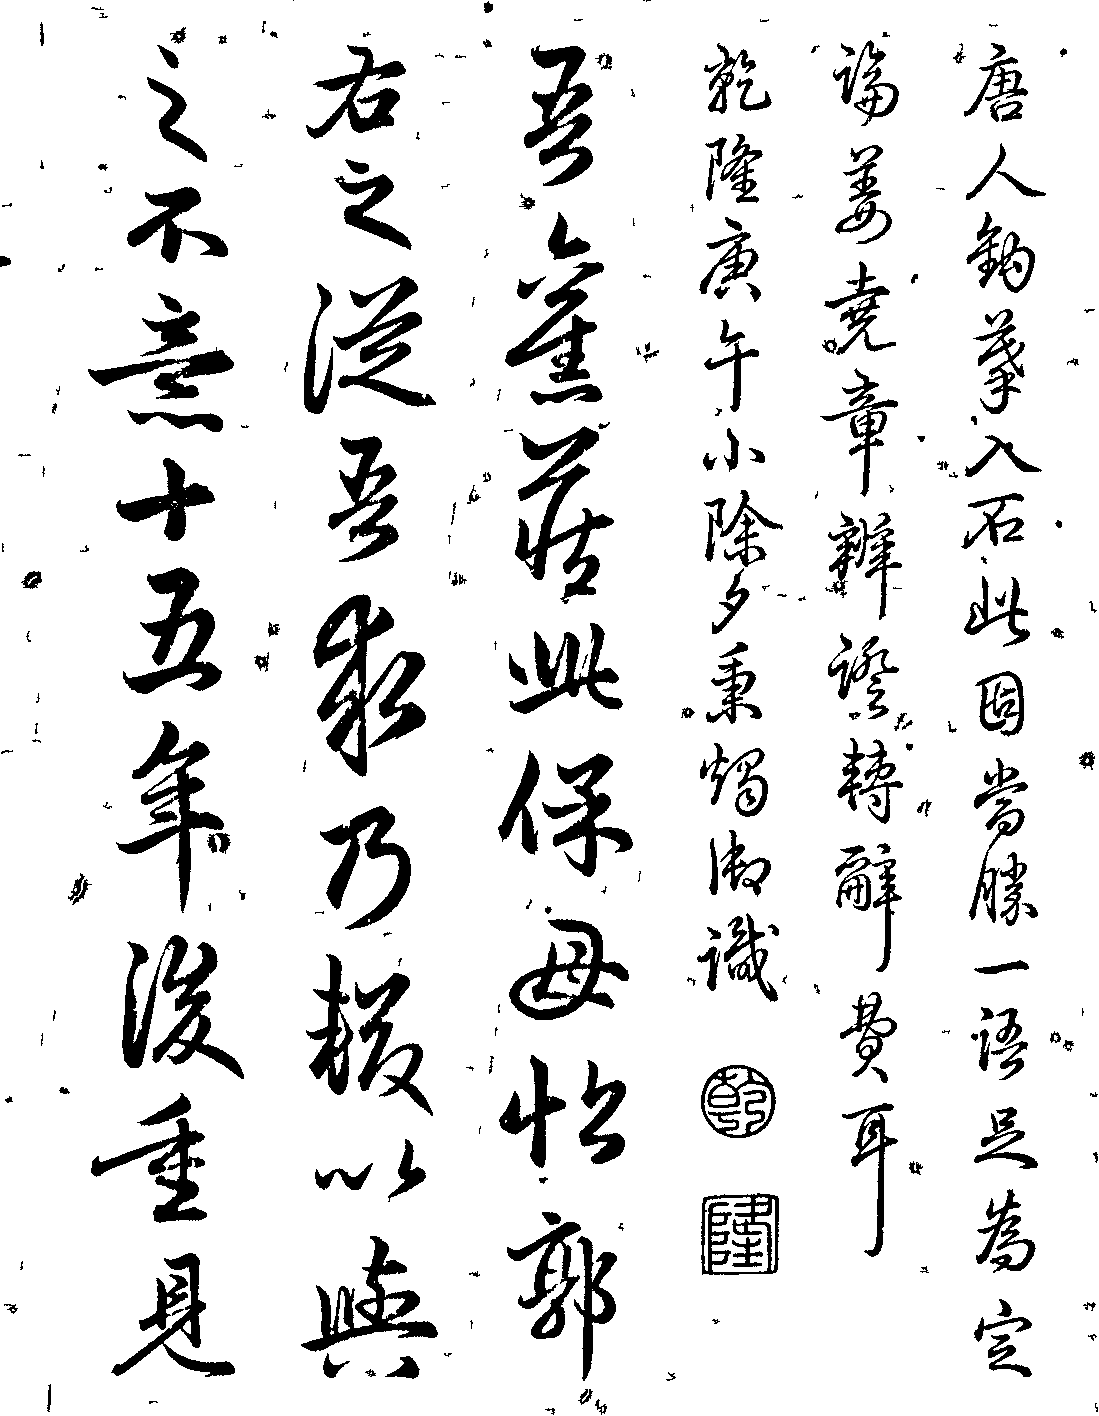 唐人鈎摹入石此固當勝一語足為定
論姜堯章辨證轉辭費耳
乾隆庚午小除夕秉燭御識
乾
隆
吾舊蓄此保母帖郭
右之從吾求乃輟以與
之不意十五年後重見